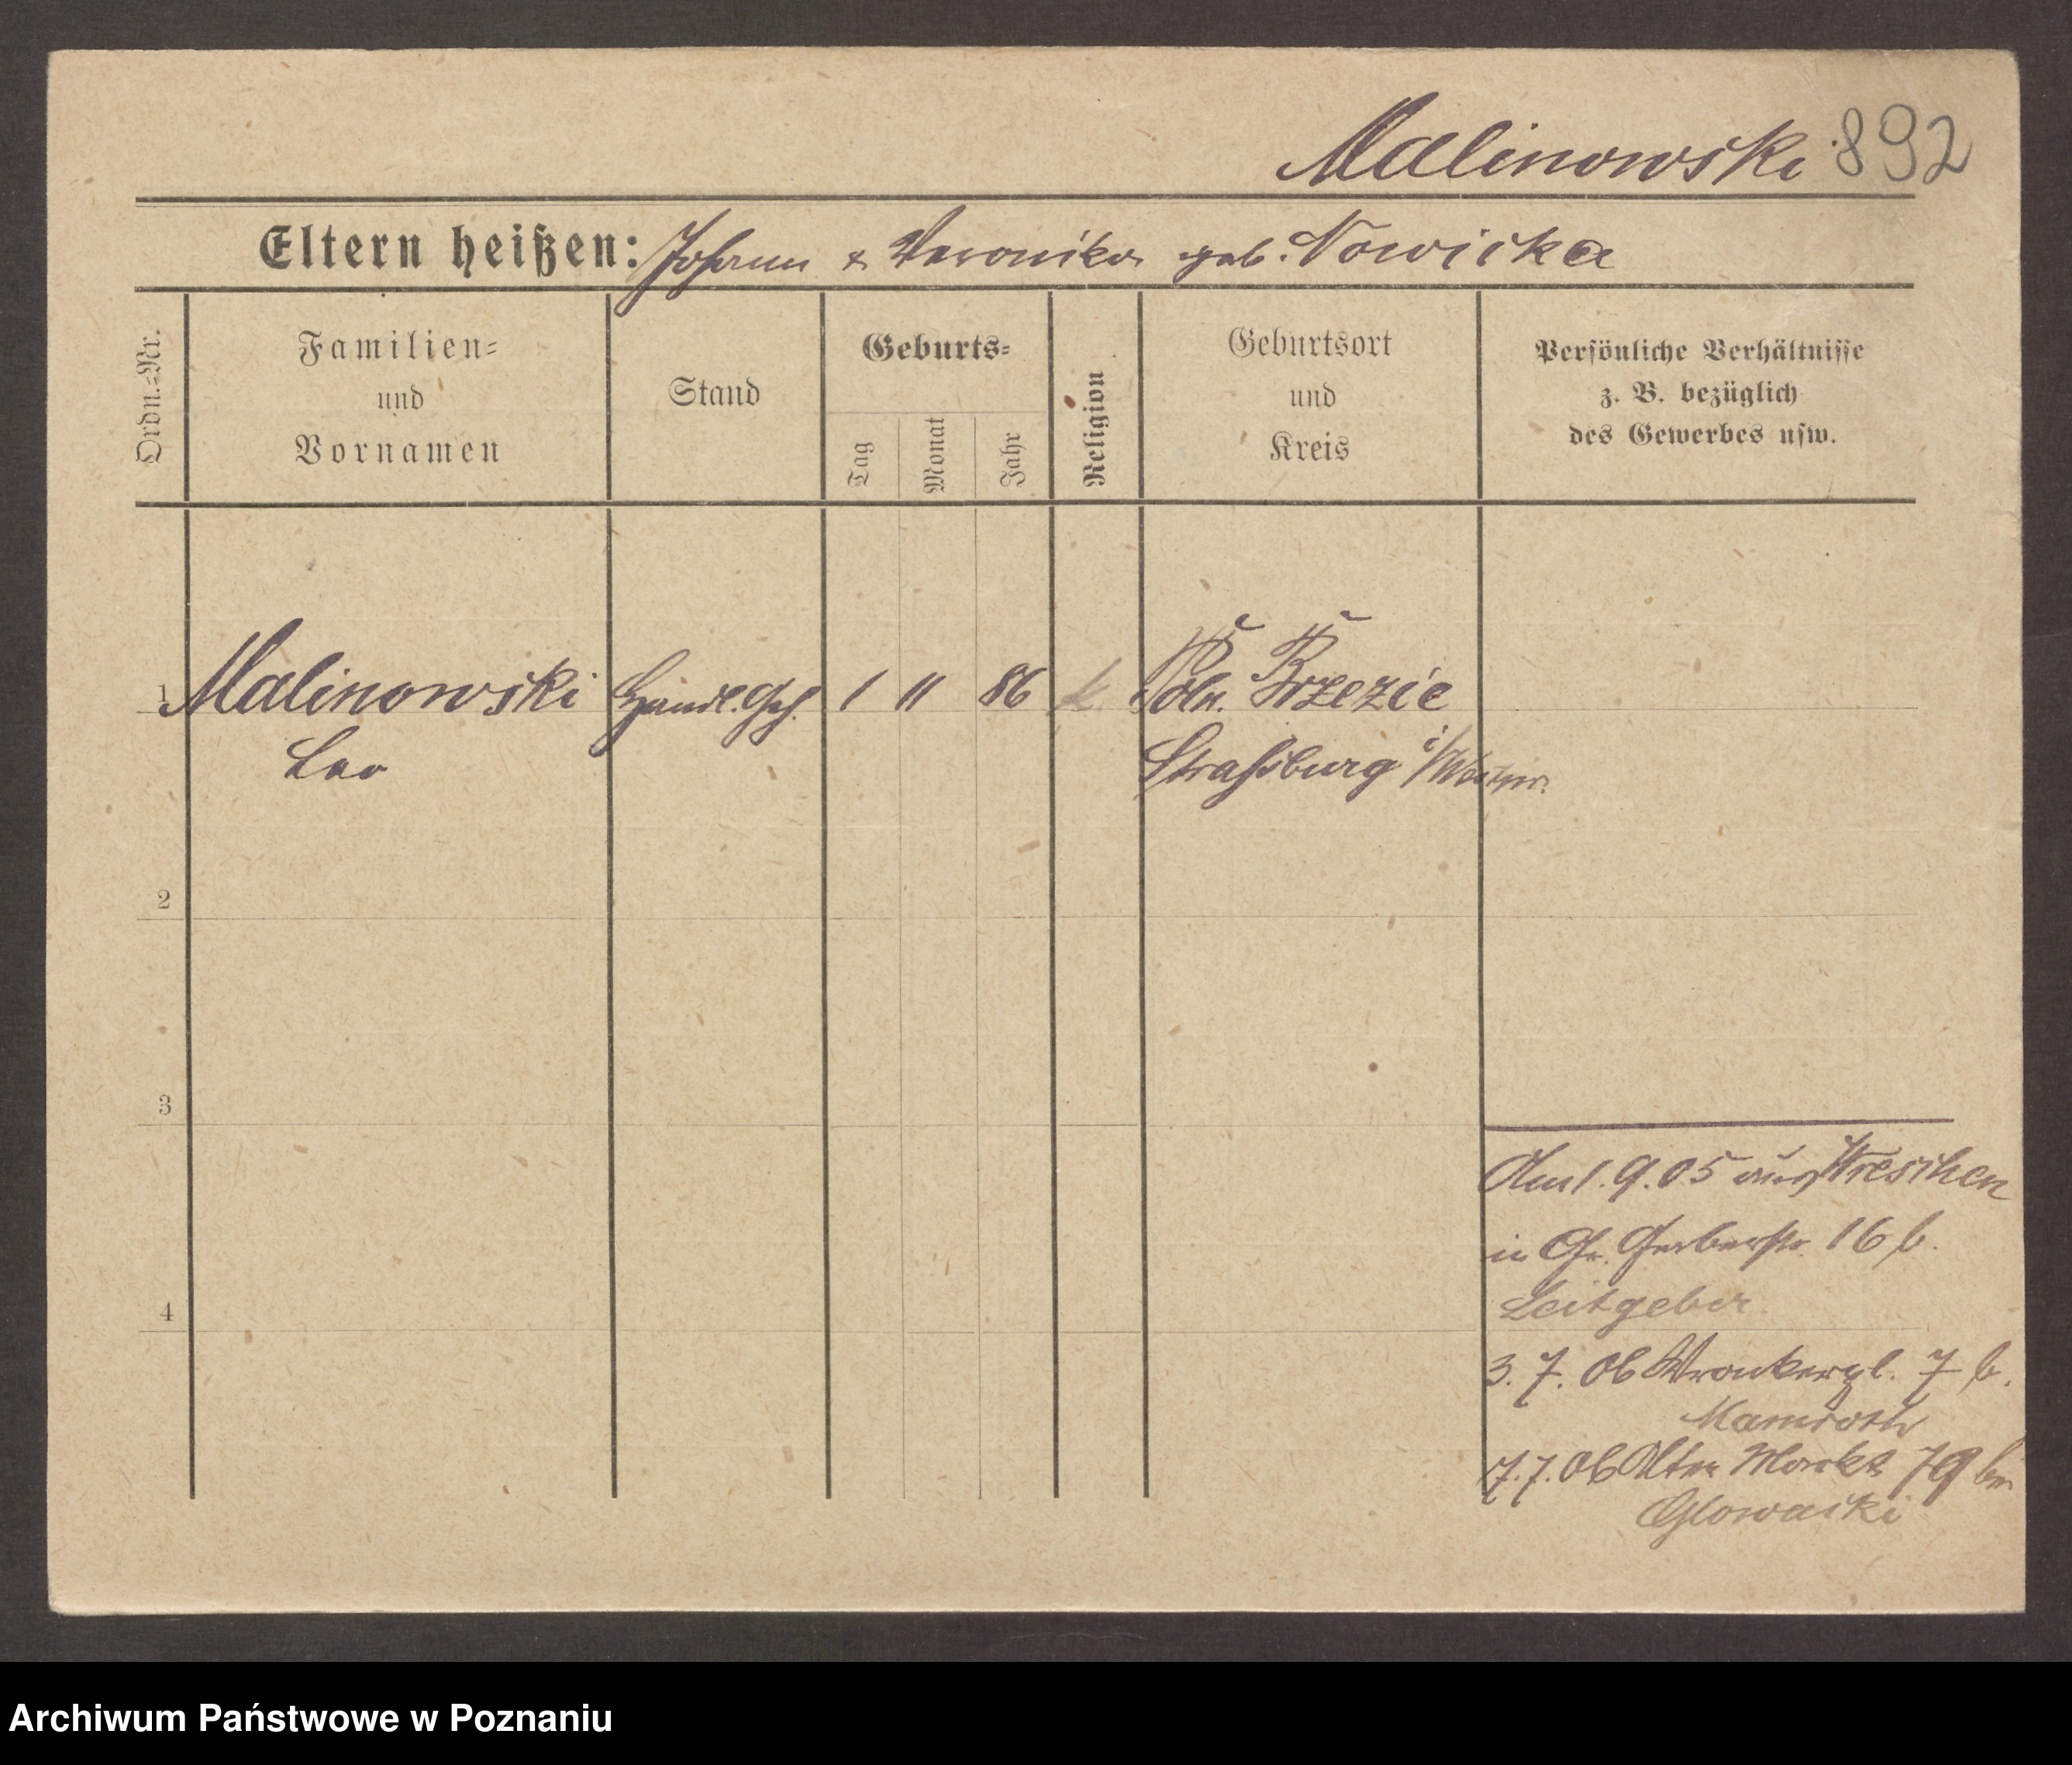 Malinowski 892
Eltern heißen: Johann & Veronika geb. Nowicka
Ordn.=Nr.
Familien=
und
Vornamen
Stand
Geburts=
Tag
Monat
Jahr
Religion
Geburtsort
und
Kreis
Persönliche Verhältnisse
z. B. bezüglich
des Gewerbes usw.
1 Malinowski Handl. Geh. 1 11 86 k Poln. Brzezie
Leo Straßburg i/Westpr.
2
3
4
Am 1. 9. 05 aus Wreschen
in Gr. Gerberstr. 16 b.
Leitgeber
3. 7. 06 Wronkerpl. 7 b.
Mamroth
7. 7. 06 Alter Markt 79 bei
Glowacki
Archiwum Państwowe w Poznaniu